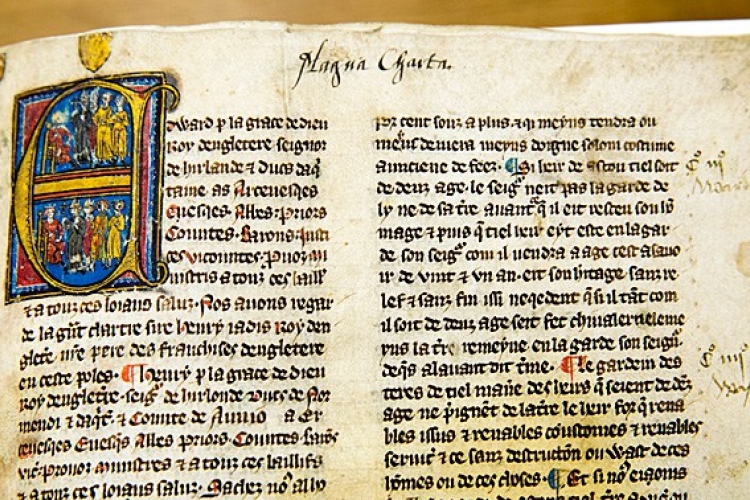 Magna Charta.
Edward p la grace de dieu
Roy dengletere seignor
de hirlande & Ducs daq̄
taine as Arceuesqes
Euesqes. Abbes. Priors
Countes. Barons. Justi
ces vicountes. p̄uoz mi
nistris a touz ces baill
& a touz ces loiaus saluz. Nos auons regar
de la g̃nt chartre sire henry iadis Roy den
gletre nr̄e pere des franchises dengletere
en ceste poles. ¶ Henry p la grace de dieu
Roy dengletre. seig̃ de hirlonde Ducs de Nor
mendi & daq̄t. & Counte de a Er
ceuesqes Euesqes Abbes Priors. Countes. barōs.
vic. prouoz ministres & a touz ces baillifs
& a touz ces loiaus saluz. Sachez no᷒
por cent souz a plus. & qi meyns tendra ou
meins deuiera meyns doigne solom coustume
aunciene de feez. ¶ Si heir de ascou tiel soit
de deinz age. le seig̃ neit pas la garde de
ly ne de sa t̄re auant q̄ il eit resceu soun
mage & puis q̄ tiel heir eyt este en la gar
de son seig̃ com il uendra a age cest asauo
ir de vint & vn an. eit son h̄itage sanz re
lef & sanz fin issi neqedent q̄ si il tāt com
il soit de deinz age seit fet chiualer neleme
yns la t̄re remeyne en la garde son seig̃
deqs alauant dit t̄me. ¶ Le gardein des
teres de tiel man̄e des heirs q̄ seient de deīz
age ne p̄ignēt de la t̄re le heir for q̄ rena
bles issus & renables coustomes & renables
seruic̄ & ce sanz destructōn ou wast de ces
hōmes ou de ces choses. ¶ Et si no᷒ eioms